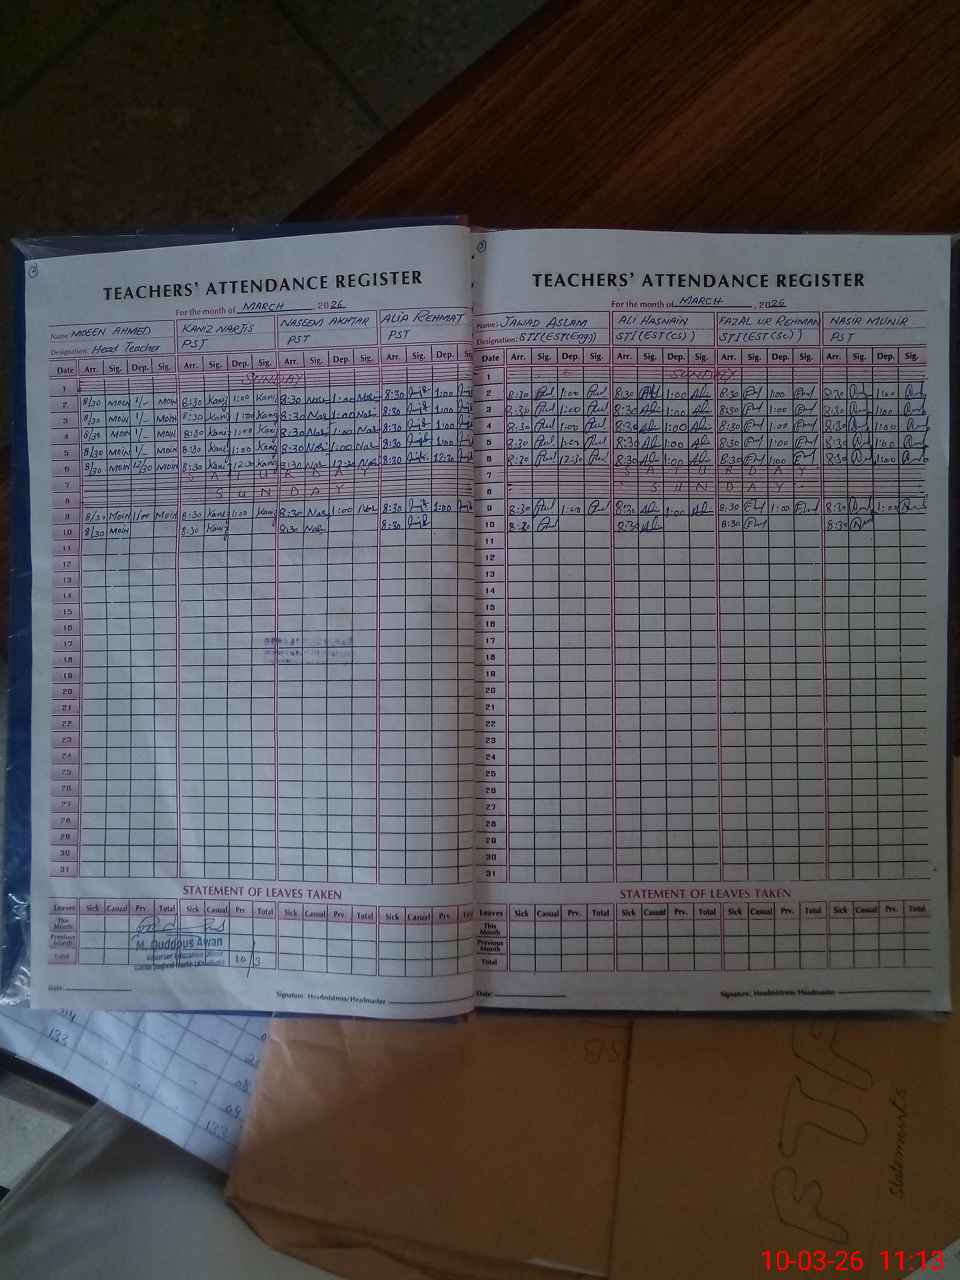 TEACHERS' ATTENDANCE REGISTER
For the month of MARCH, 2026
Name MOEEN AHMED KANIZ NARJIS NASEEM AKHTAR ALIA REHMAT
Designation: Head Teacher PST PST PST
Date Arr. Sig. Dep. Sig. Arr. Sig. Dep. Sig. Arr. Sig. Dep. Sig. Arr. Sig. Dep. Sig.
1 SUNDAY
2 8/30 Moin 1/- Moin 8:30 Kaniz 1:00 Kaniz 8:30 Nas 1:00 Nas 8:30 1:00
3 8/30 Moin 1/- Moin 8:30 Kaniz 1:00 Kaniz 8:30 Nas 1:00 Nas 8:30 1:00
4 8/30 Moin 1/- Moin 8:30 Kaniz 1:00 Kaniz 8:30 Nas 1:00 Nas 8:30 1:00
5 8/30 Moin 1/- Moin 8:30 Kaniz 1:00 Kaniz 8:30 Nas 1:00 Nas 8:30 1:00
6 8/30 Moin 12/30 Moin 8:30 Kaniz 12:30 Kaniz 8:30 Nas 12:30 Nas 8:30 12:30
7 SATURDAY
8 SUNDAY
9 8/30 Moin 1:00 Moin 8:30 Kaniz 1:00 Kaniz 8:30 Nas 1:00 Nas 8:30 1:00
10 8/30 Moin 8:30 Kaniz 8:30 Nas 8:30
11
12
13
14
15
16
17
18
19
20
21
22
23
24
25
26
27
28
29
30
31
STATEMENT OF LEAVES TAKEN
Leaves Sick Casual Prv. Total Sick Casual Prv. Total Sick Casual Prv. Total Sick Casual Prv. Total
This Month
Previous Month
Total
M. Quddous Awan
10/3
Date: Signature: Headmistress/Headmaster
TEACHERS' ATTENDANCE REGISTER
For the month of MARCH, 2026
Name: JAWAD ASLAM ALI HASNAIN FAZAL UR REHMAN NASIR MUNIR
Designation: STI(EST(Eng)) STI(EST(CS)) STI(EST(SC)) PST
Date Arr. Sig. Dep. Sig. Arr. Sig. Dep. Sig. Arr. Sig. Dep. Sig. Arr. Sig. Dep. Sig.
1 SUNDAY
2 8:30 1:00 8:30 1:00 8:30 1:00 8:30 1:00
3 8:30 1:00 8:30 1:00 8:30 1:00 8:30 1:00
4 8:30 1:00 8:30 1:00 8:30 1:00 8:30 1:00
5 8:30 1:00 8:30 1:00 8:30 1:00 8:30 1:00
6 8:30 12:30 8:30 1:00 8:30 1:00 8:30 1:00
7 SATURDAY
8 SUNDAY
9 8:30 1:00 8:30 1:00 8:30 1:00 8:30 1:00
10 8:30 8:30 8:30 8:30
11
12
13
14
15
16
17
18
19
20
21
22
23
24
25
26
27
28
29
30
31
STATEMENT OF LEAVES TAKEN
Leaves Sick Casual Prv. Total Sick Casual Prv. Total Sick Casual Prv. Total Sick Casual Prv. Total
This Month
Previous Month
Total
Date: Signature: Headmistress/Headmaster
133
Statements
10-03-26 11:13